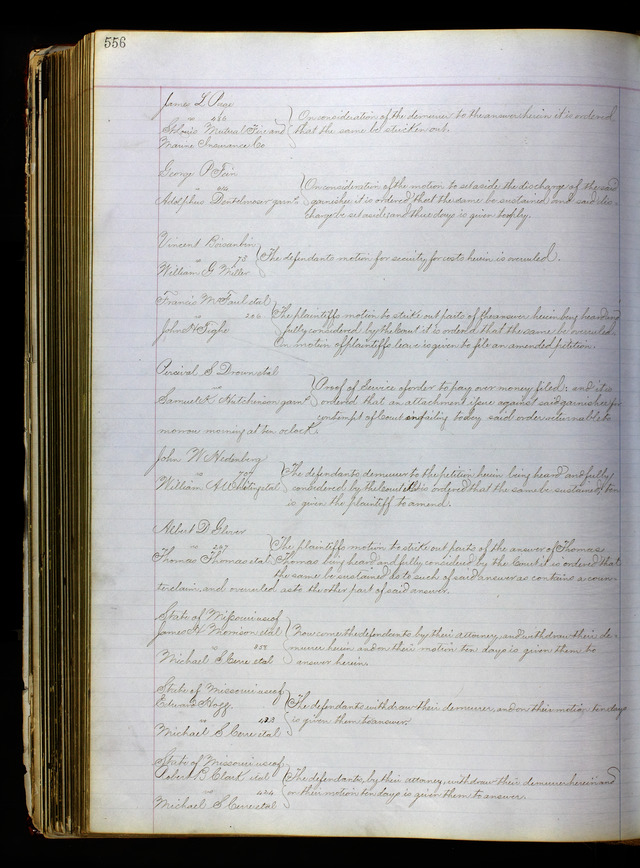 556
James L Page
vs 410 } On consideration of the demurrer to the answer herein it is ordered
St Louis Mutual Fire and that the same be stricken out.
Marine Insurance Co
George P Fein
vs } On consideration of the motion to set aside the discharge of the said
Adolphus Dentelmoser garn. garnishee it is ordered that the same be sustained and said dis-
charge be set aside; and three days is given to reply.
Vincent Boisaubin
vs 78 } The defendants motion for security for costs herein is overruled.
William G Miller
Francis M Faul et al
vs 206 } The plaintiffs motion to strike out parts of the answer herein being heard and
John H Tighe fully considered by the Court it is ordered that the same be overruled.
On motion of plaintiffs leave is given to file an amended petition.
Percival S Drown et al
vs } Proof of Service of order to pay over money filed; and it is
Samuel K Hutchinson garnt ordered that an attachment issue against said garnishee for
contempt of Court in failing to obey said order returnable to
morrow morning at ten oclock.
John W Niedenberg
vs 707 } The defendants demurrer to the petition herein being heard and fully
William A et al considered by the Court it is ordered that the same be sustained, ten
is given the plaintiff to amend.
Albert D Glover
vs 267 } The plaintiffs motion to strike out parts of the answer of Thomas
Thomas Thomas et al Thomas being heard and fully considered by the Court it is ordered that
the same be sustained as to such of said answer as contains a coun-
terclaim, and overruled as to the other part of said answer.
State of Missouri use of
James H Morrison et al } Now come the defendants by their attorney, and withdraw their de-
vs 352 murrer herein and on their motion ten days is given them to
Michael S Cerre et al answer herein.
State of Missouri use of
Edward Hogg } The defendants withdraw their demurrer, and on their motion ten days
vs 423 is given them to answer.
Michael S Cerre et al
State of Missouri use of
Robert B Clark et al } The defendants, by their attorney, withdraw their demurrer herein and
vs 424 on their motion ten days is given them to answer.
Michael S Cerre et al